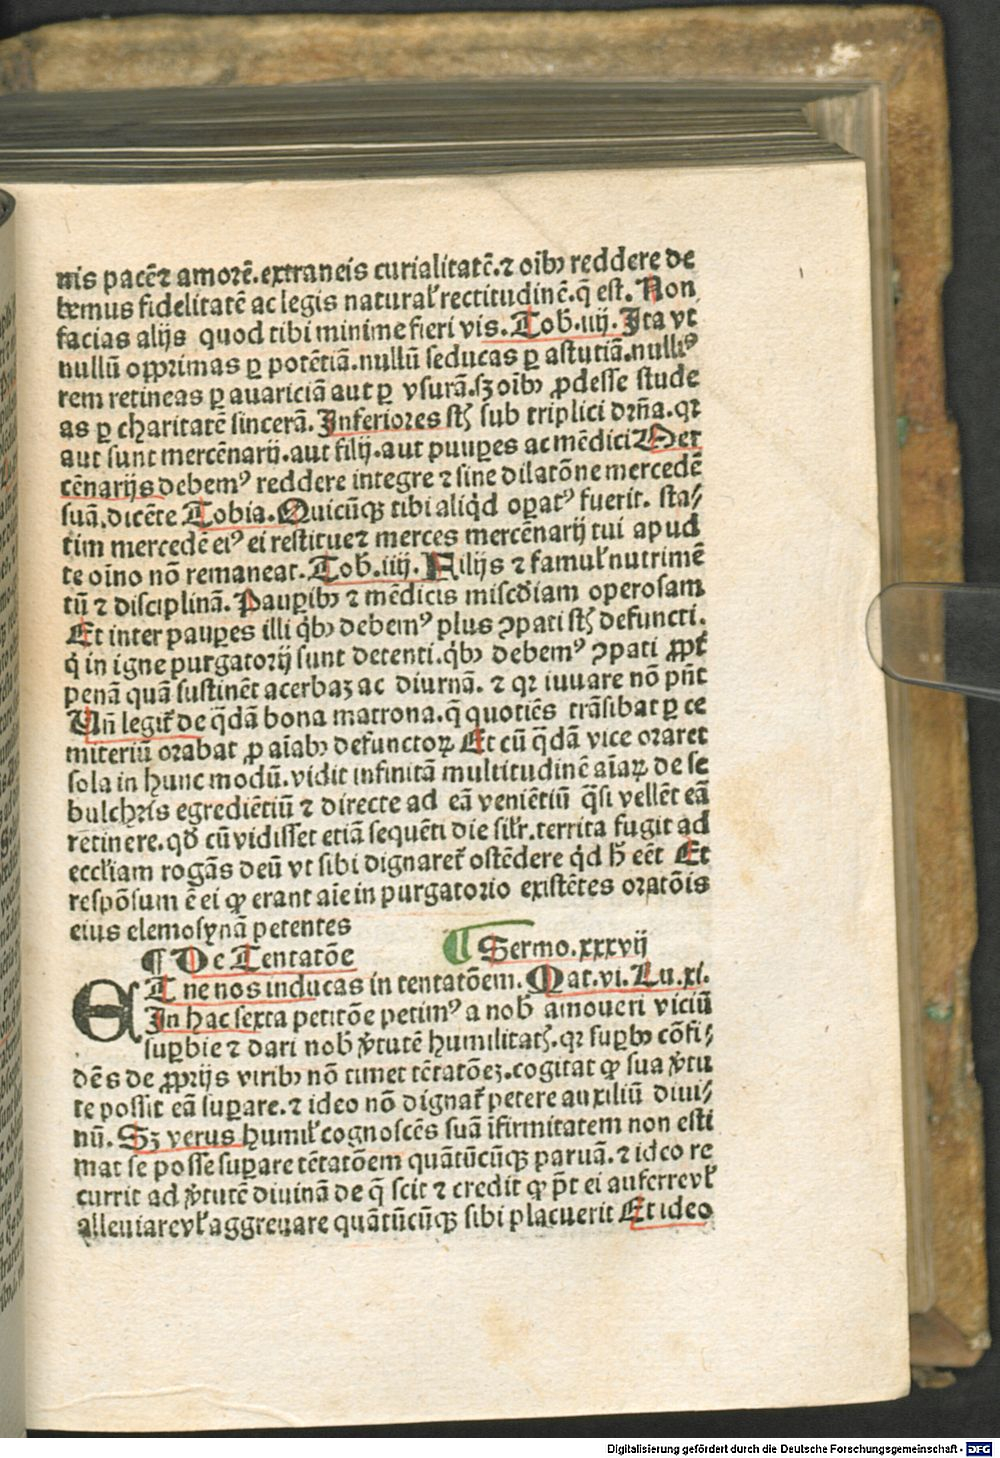 nis pacē⁊ amorē.extraneis curialitatē.⁊ oībꝫ reddere de
bemus fidelitatē ac legis natural̕ rectitudinē.q̄ est. Non
facias alijs quod tibi minime fieri vis. Tob̄.iiij. Ita vt
nullū opp̄rimas ꝑ potētiā.nullū seducas ꝑ astutiā.nulliꝰ
rem retineas ꝑ auariciā aut ꝑ vsurā.sꝫ oībꝫ ꝓdesse stude
as ꝑ charitatē sincerā. Inferiores st̄ sub triplici dr̄na.qꝛ
aut sunt mercēnarij.aut filij.aut pauꝑes ac mēdici Mer
cēnarijs debemꝰ reddere integre ⁊ sine dilatōne mercedē
suā.dicēte Tobia. Quicūqꝫ tibi aliq̇d oꝑatꝰ fuerit. sta⸗
tim mercedē eiꝰ ei restitue⁊ merces mercēnarij tui apud
te oīno nō remaneat. Tob̄.iiij. Filijs ⁊ famul̕ nutrimē
tū ⁊ disciplinā. Pauꝑibꝫ ⁊ mēdicis misc̄diam operosam
Et inter pauꝑes illi q̇bꝫ debemꝰ plus ꝯpati st̄ defuncti.
q̇ in igne purgatorij sunt detenti.q̇bꝫ debemꝰ ꝯpati ꝓpt̕
penā quā sustinēt acerbaꝫ ac diurnā. ⁊ qꝛ iuuare nō pn̄t
Vn̄ legit̕ de q̄dā bona matrona.q̄ quotiēs trāsibat ꝑ ce
miteriū orabat ꝓ aīabꝫ defunctoꝝ Et cū q̄dā vice oraret
sola in hunc modū.vidit infinitā multitudinē aīaꝝ de se
bulchris egrediētiū ⁊ directe ad eā veniētiū q̄si vellēt eā
retinere.qd̄ cū vidisset etiā sequēti die sil̕r.territa fugit ad
eccl̕iam rogās deū vt sibi dignaret̕ ostēdere q̇d h̄ eēt Et
respōsum ē ei ꝙ erant aīe in purgatorio existētes oratōis
eius elemosynā petentes
¶ De Tentatōe ¶ Sermo.xxxvij
ET ne nos inducas in tentatōem. Mat.vi. Lu.xi.
In hac sexta petitōe petimꝰ a nob̄ amoueri viciū
suꝑbie ⁊ dari nob̄ v̓tutē humilitatꝭ.qꝛ suꝑbꝰ cōfi⸗
dēs de ꝓprijs viribꝫ nō timet tētatōeꝫ.cogitat ꝙ sua v̓tu
te possit eā suꝑare.⁊ ideo nō dignat̕ petere auxiliū diui⸗
nū. Sꝫ verus humil̕ cognoscēs suā īfirmitatem non esti
mat se posse suꝑare tētatōem quātūcūqꝫ paruā.⁊ ideo re
currit ad v̓tutē diuinā de q̄ scit ⁊ credit ꝙ p̄t ei auferre vl̕
alleuiare vl̕ aggreuare quātūcūqꝫ sibi placuerit Et ideo
Digitalisierung gefördert durch die Deutsche Forschungsgemeinschaft - DFG